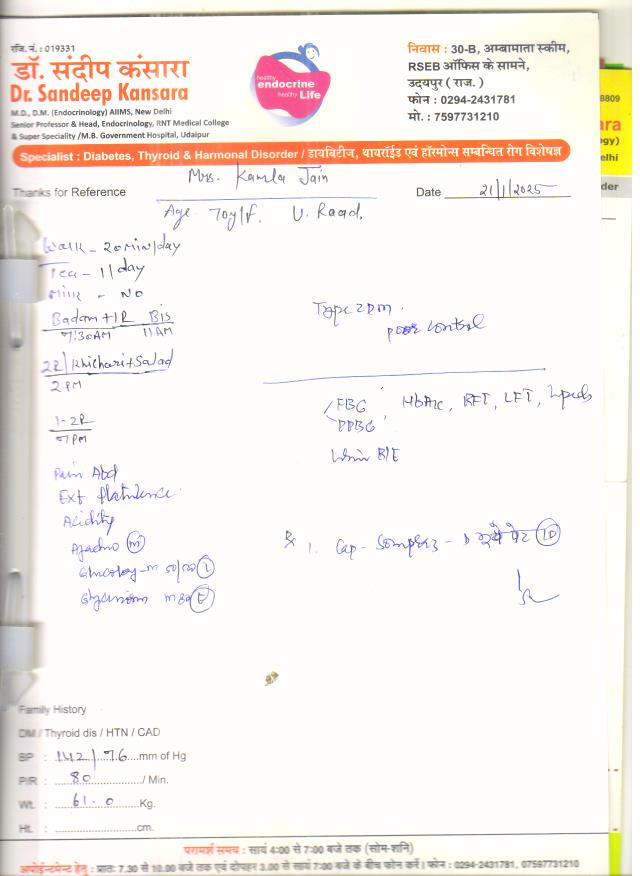 रजि. नं. : 019331
डॉ. संदीप कंसारा
Dr. Sandeep Kansara
M.D., D.M. (Endocrinology) AIIMS, New Delhi
Senior Professor & Head, Endocrinology, RNT Medical College
& Super Speciality /M.B. Government Hospital, Udaipur
healthy
endocrine
healthy Life
निवास : 30-B, अम्बामाता स्कीम,
RSEB ऑफिस के सामने,
उदयपुर ( राज. )
फोन : 0294-2431781
मो. : 7597731210
8809
ara
ogy)
elhi
der
Specialist : Diabetes, Thyroid & Harmonal Disorder / डायबिटीज, थायरॉईड एवं हॉरमोन्स सम्बन्धित रोग विशेषज्ञ
Thanks for Reference Mrs. Kamla Jain Date 21/1/2025
Age 70y/F. U. Raad.
Walk - 20 min/day
Tea - 1/day
Milk - NO
Badam + 1R Bis
7:30AM 11AM
2R/Khichari+Salad
2 PM
1-2R
7PM
Type 2 DM.
poor control
FBG
PPBG, HbA1c, RFT, LFT, Lipids
Urine R/E
Pain Abd
Ext flatulence
Acidity
M
M 50/500
℞ 1. Cap - - D पेट
Family History
DM / Thyroid dis / HTN / CAD
BP : 142/76 mm of Hg
P/R : 80 / Min.
Wt. : 61.0 Kg.
Ht. : cm.
परामर्श समय : सायं 4:00 से 7:00 बजे तक (सोम-शनि)
अपोईन्टमेन्ट हेतु : प्रातः 7.30 से 10.00 बजे तक एवं दोपहर 3.00 से सायं 7:00 बजे के बीच फोन करें। फोन : 0294-2431781, 07597731210